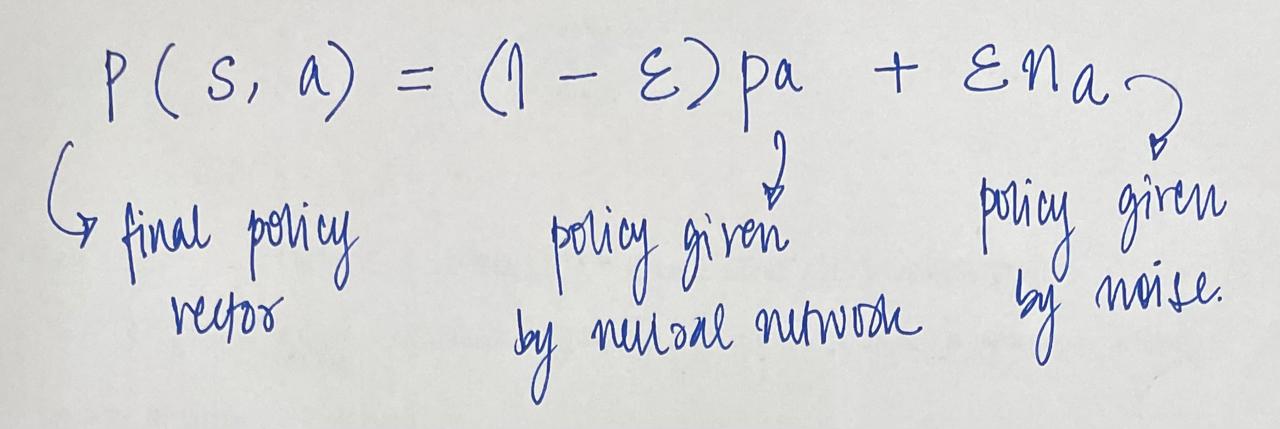 P(s, a) = (1 - ε)pa + εηa
final policy
vector
policy given
by neural network
policy given
by noise.